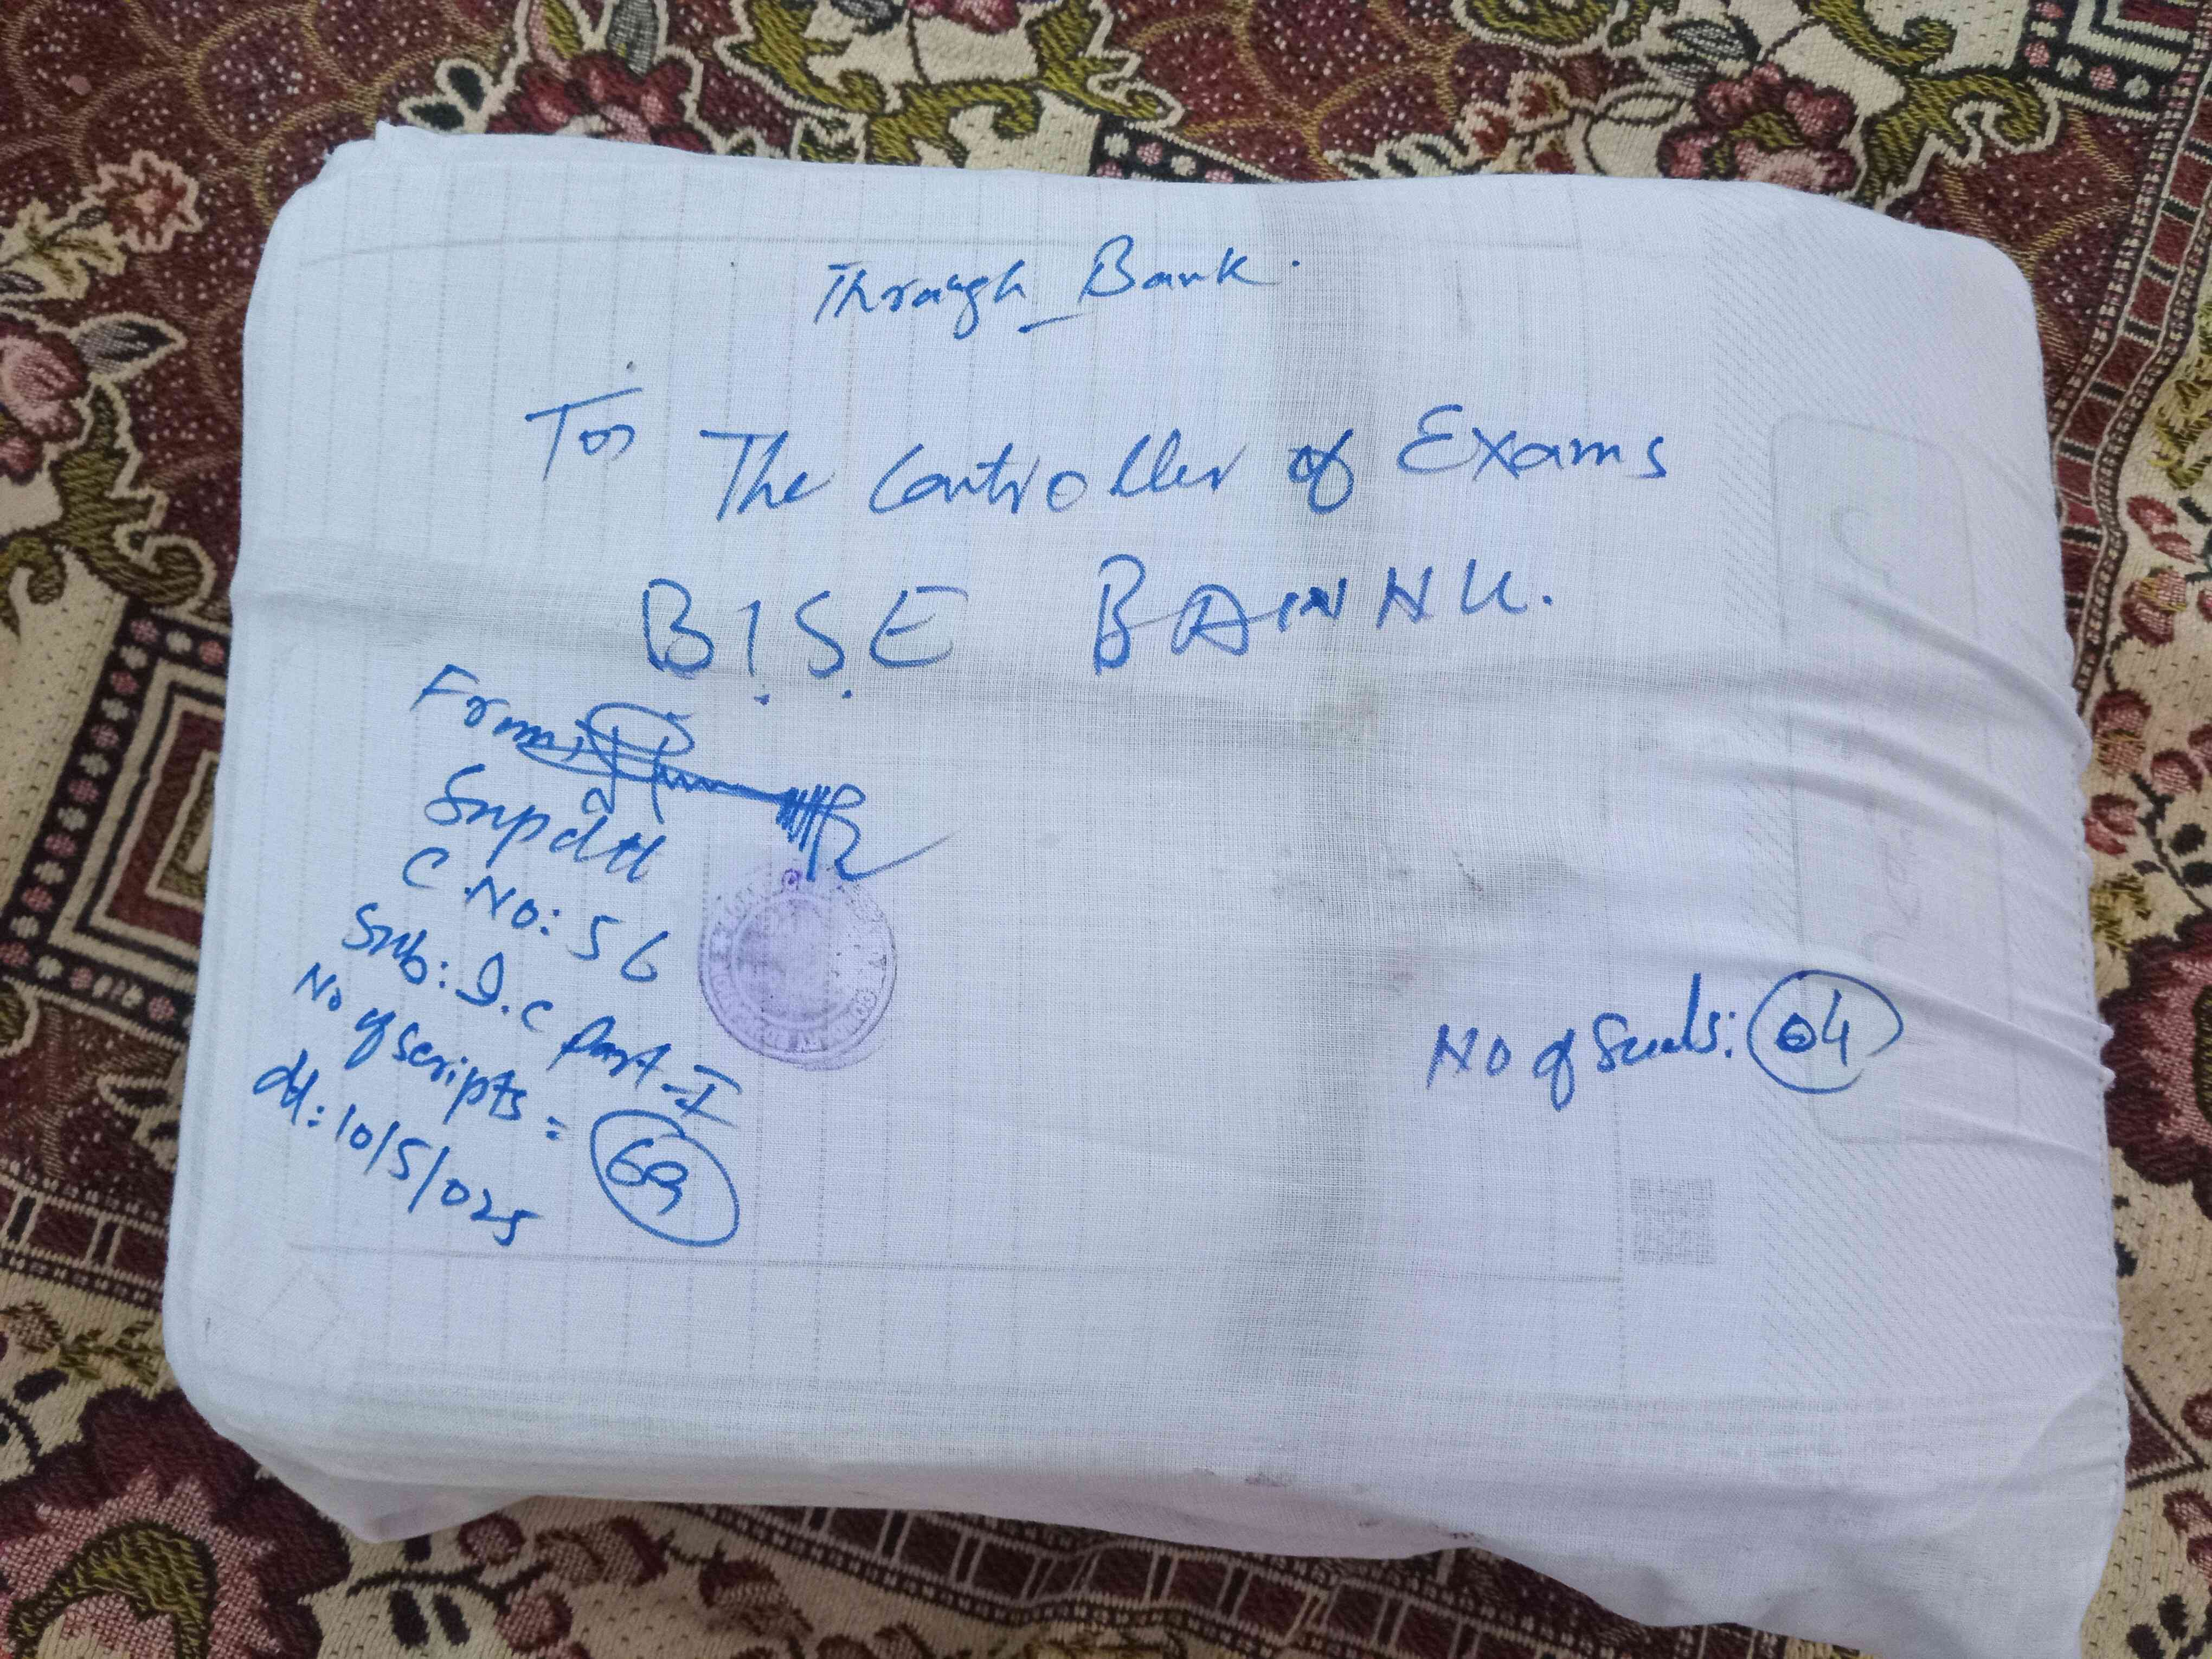 Through Bank.
To The Controller of Exams
B.I.S.E BANNU.
From,
Supdtt
C.No: 56
Sub: I.C Part-I
No of scripts = 69
dt: 10/5/025
No of Seals: 04